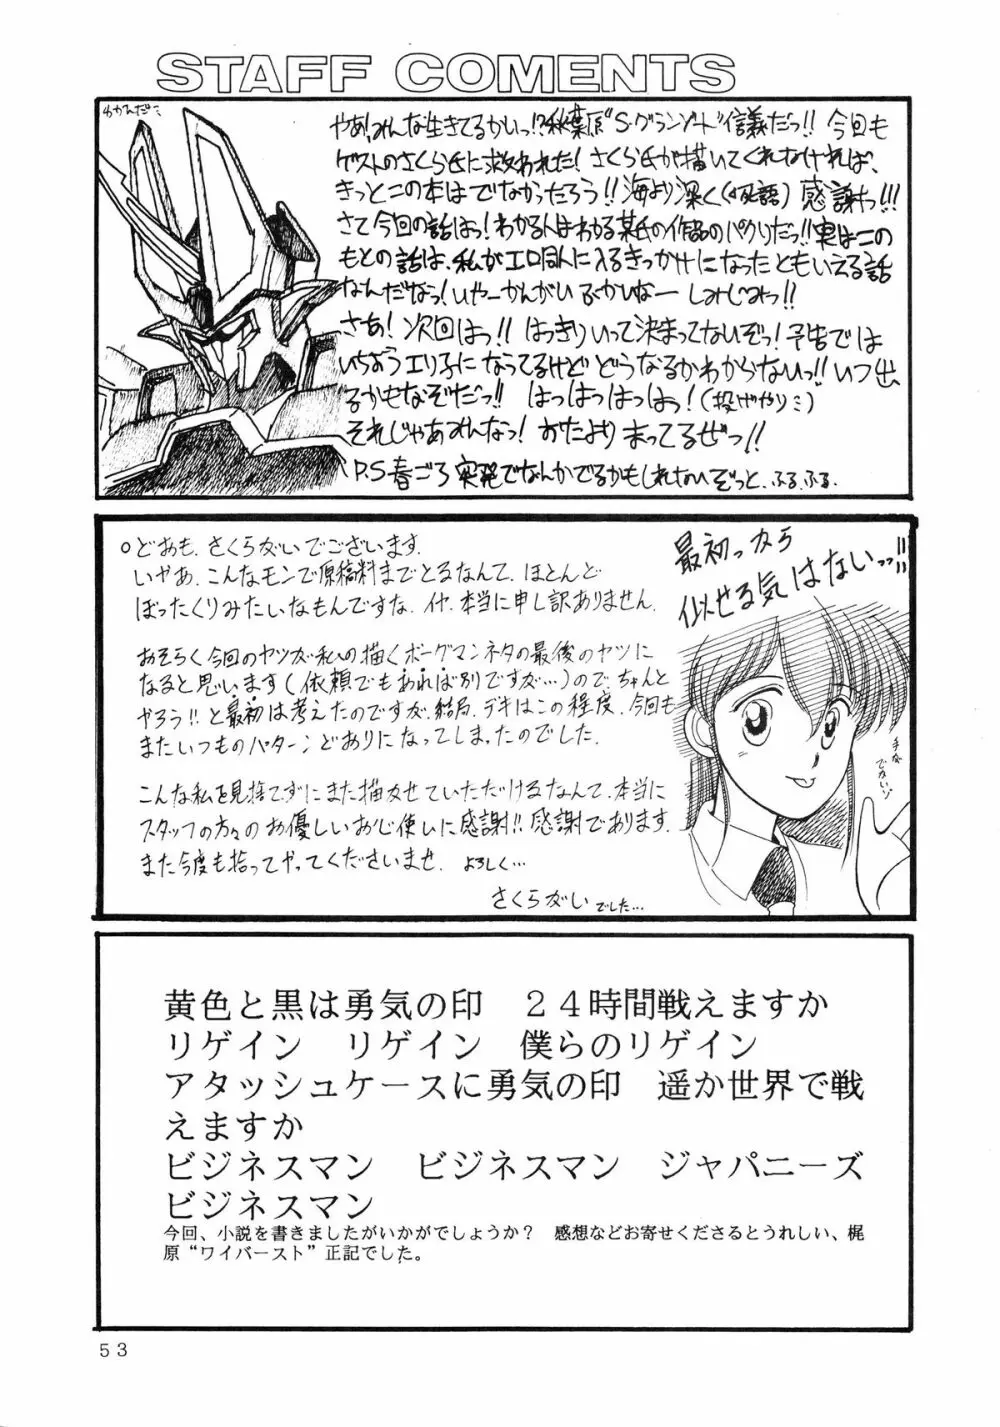 STAFF COMENTS
わかんだミ
やあ、みんな生きてるかいっ!?秋葉原“S・グランゾート”信義だっ!!今回も
ゲストのさくら氏に救われた!さくら氏が描いてくれなければ、
きっとこの本はでなかったろう!!海より深く(死語)感謝っ!!!
さて今回の話はっ!わかる人はわかる某氏の作品のパクリだっ!!実はこの
もとの話は、私がエロ同人に入るきっかけになったともいえる話
なんだなっ!いやーかんがいぶかいなー しみじみっ!!
さあ!次回はっ!!はっきりいって決まってないぞっ!予告では
いちようエリ子になってるけどどうなるかわからないっ!!いつ出
るかもなぞだっ!!はっはっはっはっ!(投げやりミ)
それじゃあみんなっ!おたよりまってるぜっ!!
P.S春ごろ突発でなんかでるかもしれないぞっと、ふる、ふる、
○どあも、さくらがいでございます。
いやあ、こんなモンで原稿料までとるなんて、ほとんど
ぼったくりみたいなもんですな、イヤ、本当に申し訳ありません。
おそらく今回のヤツが私の描くボーグマンネタの最後のヤツに
なると思います(依頼でもあれば別ですが…)ので、ちゃんと
やろう!!と最初は考えたのですが、結局、デキはこの程度、今回も
またいつものパターンどありになってしまったのでした。
こんな私を見捨てずにまた描かせていただけるなんて、本当に
スタッフの方々のお優しいお心使いに感謝!!感謝であります。
また今度も拾ってやってくださいませ、よろしく…
さくらがいでした…
最初っから
似せる気はないっ!!
手な
でかいゾ
黄色と黒は勇気の印 24時間戦えますか
リゲイン リゲイン 僕らのリゲイン
アタッシュケースに勇気の印 遥か世界で戦
えますか
ビジネスマン ビジネスマン ジャパニーズ
ビジネスマン
今回、小説を書きましたがいかがでしょうか? 感想などお寄せくださるとうれしい、梶
原“ワイバースト”正記でした。
53